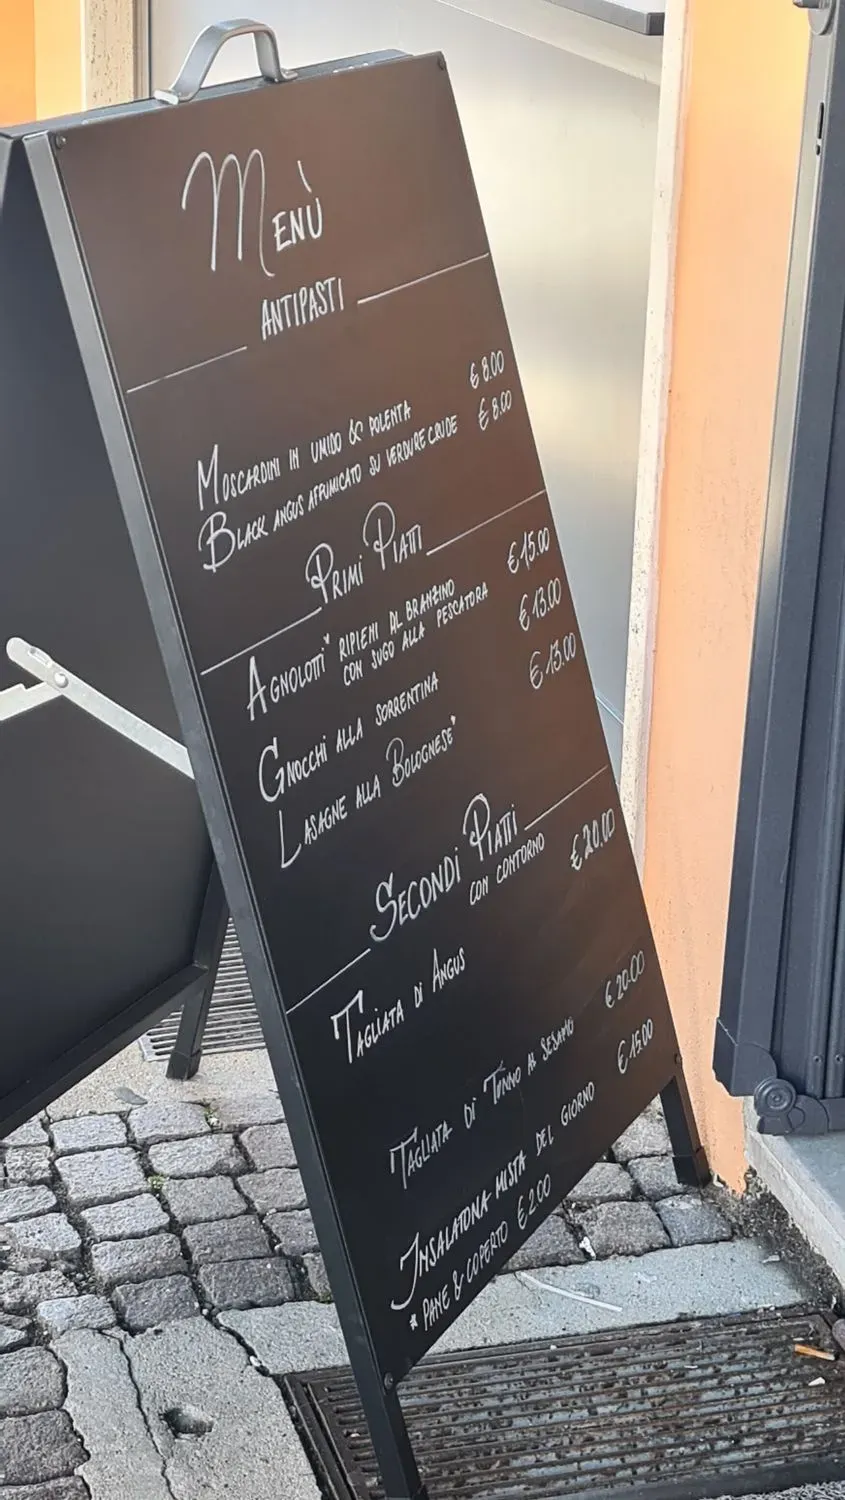 MENÙ
ANTIPASTI
MOSCARDINI IN UMIDO & POLENTA € 8.00
BLACK ANGUS AFFUMICATO SU VERDURE CRUDE € 8.00
PRIMI PIATTI
AGNOLOTTI* RIPIENI AL BRANZINO € 15.00
CON SUGO ALLA PESCATORA
GNOCCHI ALLA SORRENTINA € 13.00
LASAGNE ALLA BOLOGNESE* € 13.00
SECONDI PIATTI
CON CONTORNO
TAGLIATA DI ANGUS € 20.00
TAGLIATA DI TONNO AL SESAMO € 20.00
INSALATONA MISTA DEL GIORNO € 15.00
* PANE & COPERTO € 2.00